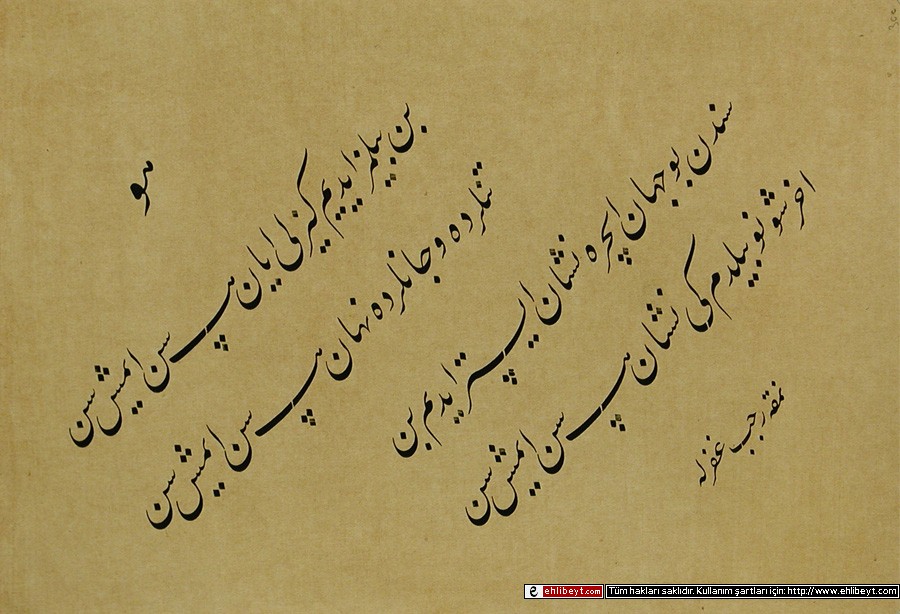 هو
بن بيلمز ايديم گيزلى عيان هپ سن ايمشسن
تنلرده و جانلرده نهان هپ سن ايمشسن
سندن بو جهان ايچره نشان ايستر ايديم بن
آخر شونو بيلدم كى نشان هپ سن ايمشسن
نمقه رجب غفرله
٣٠٥
ehlibeyt.com Tüm hakları saklıdır. Kullanım şartları için: http://www.ehlibeyt.com